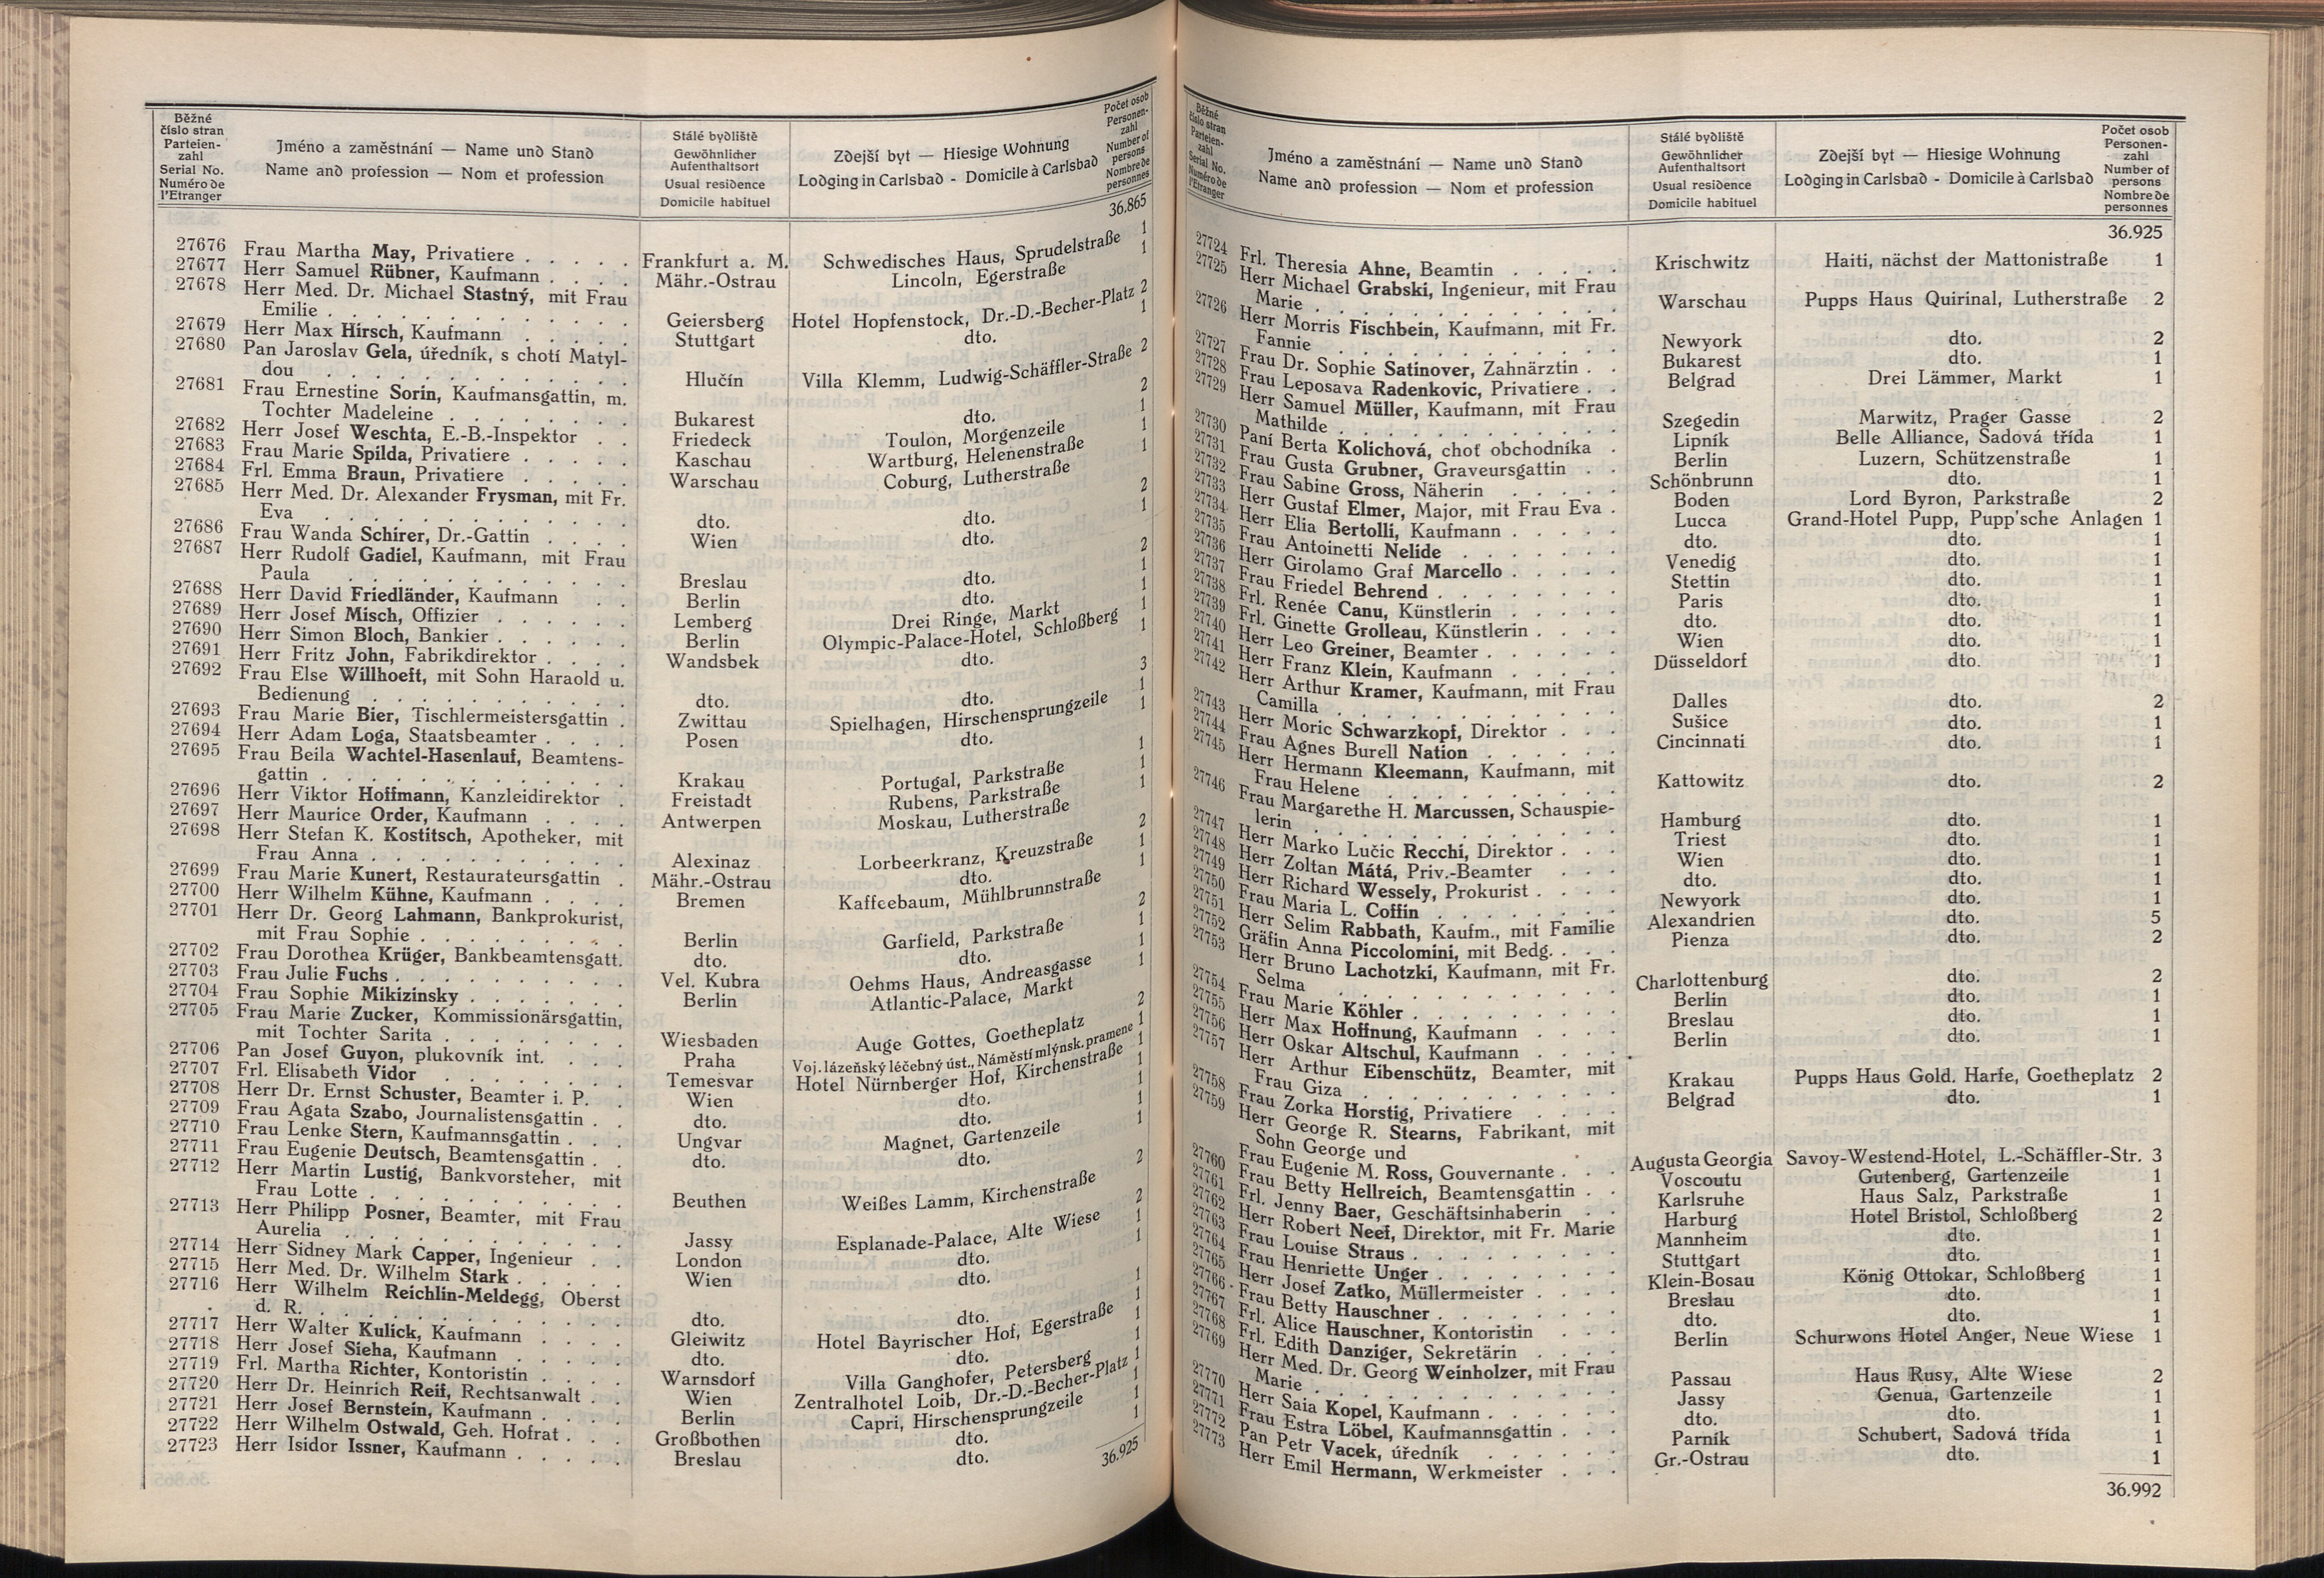 Běžné
číslo stran
Parteien-
zahl
Serial No.
Numéro de
l'Etranger
Jméno a zaměstnání — Name und Stand
Name and profession — Nom et profession
Stálé bydliště
Gewöhnlicher
Aufenthaltsort
Usual residence
Domicile habituel
Zdejší byt — Hiesige Wohnung
Lodging in Carlsbad - Domicile à Carlsbad
Počet osob
Personen-
zahl
Number of
persons
Nombre de
personnes
36.865
27676 Frau Martha May, Privatiere . . . . . Frankfurt a. M. Schwedisches Haus, Sprudelstraße 1
27677 Herr Samuel Rübner, Kaufmann . . . . Mähr.-Ostrau Lincoln, Egerstraße 1
27678 Herr Med. Dr. Michael Stastný, mit Frau
Emilie . . . . . . . . . . . . Geiersberg Hotel Hopfenstock, Dr.-D.-Becher-Platz 2
27679 Herr Max Hirsch, Kaufmann . . . . . Stuttgart dto. 1
27680 Pan Jaroslav Gela, úředník, s chotí Matyl-
dou . . . . . . . . . . . . Hlučín Villa Klemm, Ludwig-Schäffler-Straße 2
27681 Frau Ernestine Sorin, Kaufmansgattin, m.
Tochter Madeleine . . . . . . . . Bukarest dto. 2
27682 Herr Josef Weschta, E.-B.-Inspektor . . Friedeck Toulon, Morgenzeile 1
27683 Frau Marie Spilda, Privatiere . . . . . Kaschau Wartburg, Helenenstraße 1
27684 Frl. Emma Braun, Privatiere . . . . . Warschau Coburg, Lutherstraße 1
27685 Herr Med. Dr. Alexander Frysman, mit Fr.
Eva . . . . . . . . . . . . dto. dto. 2
27686 Frau Wanda Schirer, Dr.-Gattin . . . . Wien dto. 1
27687 Herr Rudolf Gadiel, Kaufmann, mit Frau
Paula . . . . . . . . . . . Breslau dto. 2
27688 Herr David Friedländer, Kaufmann . . Berlin dto. 1
27689 Herr Josef Misch, Offizier . . . . . . Lemberg Drei Ringe, Markt 1
27690 Herr Simon Bloch, Bankier . . . . . . Berlin Olympic-Palace-Hotel, Schloßberg 1
27691 Herr Fritz John, Fabrikdirektor . . . . Wandsbek dto. 1
27692 Frau Else Willhoeft, mit Sohn Haraold u.
Bedienung . . . . . . . . . . dto. dto. 3
27693 Frau Marie Bier, Tischlermeistersgattin . Zwittau Spielhagen, Hirschensprungzeile 1
27694 Herr Adam Loga, Staatsbeamter . . . . Posen dto. 1
27695 Frau Beila Wachtel-Hasenlauf, Beamtens-
gattin . . . . . . . . . . . Krakau Portugal, Parkstraße 1
27696 Herr Viktor Hoffmann, Kanzleidirektor . Freistadt Rubens, Parkstraße 1
27697 Herr Maurice Order, Kaufmann . . . . Antwerpen Moskau, Lutherstraße 1
27698 Herr Stefan K. Kostitsch, Apotheker, mit
Frau Anna . . . . . . . . . . Alexinaz Lorbeerkranz, Kreuzstraße 2
27699 Frau Marie Kunert, Restaurateursgattin . Mähr.-Ostrau dto. 1
27700 Herr Wilhelm Kühne, Kaufmann . . . . Bremen Kaffeebaum, Mühlbrunnstraße 1
27701 Herr Dr. Georg Lahmann, Bankprokurist,
mit Frau Sophie . . . . . . . . Berlin Garfield, Parkstraße 2
27702 Frau Dorothea Krüger, Bankbeamtensgatt. dto. dto. 1
27703 Frau Julie Fuchs . . . . . . . . . Vel. Kubra Oehms Haus, Andreasgasse 1
27704 Frau Sophie Mikizinsky . . . . . . . Berlin Atlantic-Palace, Markt 1
27705 Frau Marie Zucker, Kommissionärsgattin,
mit Tochter Sarita . . . . . . . . Wiesbaden Auge Gottes, Goetheplatz 2
27706 Pan Josef Guyon, plukovník int. . . . Praha Voj. lázeňský léčebný úst., Náměstí mlýnsk. pramene 1
27707 Frl. Elisabeth Vidor . . . . . . . . Temesvar Hotel Nürnberger Hof, Kirchenstraße 1
27708 Herr Dr. Ernst Schuster, Beamter i. P. . Wien dto. 1
27709 Frau Agata Szabo, Journalistensgattin . . dto. dto. 1
27710 Frau Lenke Stern, Kaufmannsgattin . . . Ungvar Magnet, Gartenzeile 1
27711 Frau Eugenie Deutsch, Beamtensgattin . . dto. dto. 1
27712 Herr Martin Lustig, Bankvorsteher, mit
Frau Lotte . . . . . . . . . . Beuthen Weißes Lamm, Kirchenstraße 2
27713 Herr Philipp Posner, Beamter, mit Frau
Aurelia . . . . . . . . . . . Jassy Esplanade-Palace, Alte Wiese 2
27714 Herr Sidney Mark Capper, Ingenieur . . London dto. 1
27715 Herr Med. Dr. Wilhelm Stark . . . . . Wien dto. 1
27716 Herr Wilhelm Reichlin-Meldegg, Oberst
d. R. . . . . . . . . . . . . dto. dto. 1
27717 Herr Walter Kulick, Kaufmann . . . . Gleiwitz Hotel Bayrischer Hof, Egerstraße 1
27718 Herr Josef Sieha, Kaufmann . . . . . dto. dto. 1
27719 Frl. Martha Richter, Kontoristin . . . . Warnsdorf Villa Ganghofer, Petersberg 1
27720 Herr Dr. Heinrich Reif, Rechtsanwalt . . Wien Zentralhotel Loib, Dr.-D.-Becher-Platz 1
27721 Herr Josef Bernstein, Kaufmann . . . . Berlin Capri, Hirschensprungzeile 1
27722 Herr Wilhelm Ostwald, Geh. Hofrat . . . Großbothen dto. 1
27723 Herr Isidor Issner, Kaufmann . . . . . Breslau dto. 1
36.925
Běžné
číslo stran
Parteien-
zahl
Serial No.
Numéro de
l'Etranger
Jméno a zaměstnání — Name und Stand
Name and profession — Nom et profession
Stálé bydliště
Gewöhnlicher
Aufenthaltsort
Usual residence
Domicile habituel
Zdejší byt — Hiesige Wohnung
Lodging in Carlsbad - Domicile à Carlsbad
Počet osob
Personen-
zahl
Number of
persons
Nombre de
personnes
36.925
27724 Frl. Theresia Ahne, Beamtin . . . . . Krischwitz Haiti, nächst der Mattonistraße 1
27725 Herr Michael Grabski, Ingenieur, mit Frau
Marie . . . . . . . . . . . Warschau Pupps Haus Quirinal, Lutherstraße 2
27726 Herr Morris Fischbein, Kaufmann, mit Fr.
Fannie . . . . . . . . . . . Newyork dto. 2
27727 Frau Dr. Sophie Satinover, Zahnärztin . . Bukarest dto. 1
27728 Frau Leposava Radenkovic, Privatiere . . Belgrad Drei Lämmer, Markt 1
27729 Herr Samuel Müller, Kaufmann, mit Frau
Mathilde . . . . . . . . . . Szegedin Marwitz, Prager Gasse 2
27730 Paní Berta Kolichová, choť obchodníka . Lipník Belle Alliance, Sadová třída 1
27731 Frau Gusta Grubner, Graveursgattin . . Berlin Luzern, Schützenstraße 1
27732 Frau Sabine Gross, Näherin . . . . . Schönbrunn dto. 1
27733 Herr Gustaf Elmer, Major, mit Frau Eva . Boden Lord Byron, Parkstraße 2
27734 Herr Elia Bertolli, Kaufmann . . . . . Lucca Grand-Hotel Pupp, Pupp'sche Anlagen 1
27735 Frau Antoinetti Nelide . . . . . . . dto. dto. 1
27736 Herr Girolamo Graf Marcello . . . . . Venedig dto. 1
27737 Frau Friedel Behrend . . . . . . . . Stettin dto. 1
27738 Frl. Renée Canu, Künstlerin . . . . . Paris dto. 1
27739 Frl. Ginette Grolleau, Künstlerin . . . . dto. dto. 1
27740 Herr Leo Greiner, Beamter . . . . . . Wien dto. 1
27741 Herr Franz Klein, Kaufmann . . . . . Düsseldorf dto. 1
27742 Herr Arthur Kramer, Kaufmann, mit Frau
Camilla . . . . . . . . . . . Dalles dto. 2
27743 Herr Moric Schwarzkopf, Direktor . . . Sušice dto. 1
27744 Frau Agnes Burell Nation . . . . . . Cincinnati dto. 1
27745 Herr Hermann Kleemann, Kaufmann, mit
Frau Helene . . . . . . . . . Kattowitz dto. 2
27746 Frau Margarethe H. Marcussen, Schauspie-
lerin . . . . . . . . . . . . Hamburg dto. 1
27747 Herr Marko Lučic Recchi, Direktor . . . Triest dto. 1
27748 Herr Zoltan Mátá, Priv.-Beamter . . . Wien dto. 1
27749 Herr Richard Wessely, Prokurist . . . . dto. dto. 1
27750 Frau Maria L. Coffin . . . . . . . . Newyork dto. 1
27751 Herr Selim Rabbath, Kaufm., mit Familie Alexandrien dto. 5
27752 Gräfin Anna Piccolomini, mit Bedg. . . . Pienza dto. 2
27753 Herr Bruno Lachotzki, Kaufmann, mit Fr.
Selma . . . . . . . . . . . Charlottenburg dto. 2
27754 Frau Marie Köhler . . . . . . . . . Berlin dto. 1
27755 Herr Max Hoffnung, Kaufmann . . . . Breslau dto. 1
27756 Herr Oskar Altschul, Kaufmann . . . . Berlin dto. 1
27757 Herr Arthur Eibenschütz, Beamter, mit
Frau Giza . . . . . . . . . . Krakau Pupps Haus Gold. Harfe, Goetheplatz 2
27758 Frau Zorka Horstig, Privatiere . . . . Belgrad dto. 1
27759 Herr George R. Stearns, Fabrikant, mit
Sohn George und
Frau Eugenie M. Ross, Gouvernante . . . Augusta Georgia Savoy-Westend-Hotel, L.-Schäffler-Str. 3
27760 Frau Betty Hellreich, Beamtensgattin . . Voscoutu Gutenberg, Gartenzeile 1
27761 Frl. Jenny Baer, Geschäftsinhaberin . . Karlsruhe Haus Salz, Parkstraße 1
27762 Herr Robert Neef, Direktor, mit Fr. Marie Harburg Hotel Bristol, Schloßberg 2
27763 Frau Louise Straus . . . . . . . . . Mannheim dto. 1
27764 Frau Henriette Unger . . . . . . . . Stuttgart dto. 1
27765 Herr Josef Zatko, Müllermeister . . . . Klein-Bosau König Ottokar, Schloßberg 1
27766 Frau Betty Hauschner . . . . . . . . Breslau dto. 1
27767 Frl. Alice Hauschner, Kontoristin . . . dto. dto. 1
27768 Frl. Edith Danziger, Sekretärin . . . . Berlin Schurwons Hotel Anger, Neue Wiese 1
27769 Herr Med. Dr. Georg Weinholzer, mit Frau
Marie . . . . . . . . . . . Passau Haus Rusy, Alte Wiese 2
27770 Herr Saia Kopel, Kaufmann . . . . . . Jassy Genua, Gartenzeile 1
27771 Frau Estra Löbel, Kaufmannsgattin . . . dto. dto. 1
27772 Pan Petr Vacek, úředník . . . . . Parník Schubert, Sadová třída 1
27773 Herr Emil Hermann, Werkmeister . . . Gr.-Ostrau dto. 1
36.992